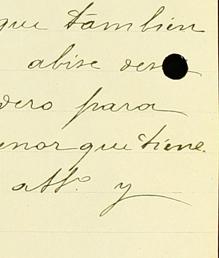 que tambien
abise des
dero para
enor que tiene.
atto. y